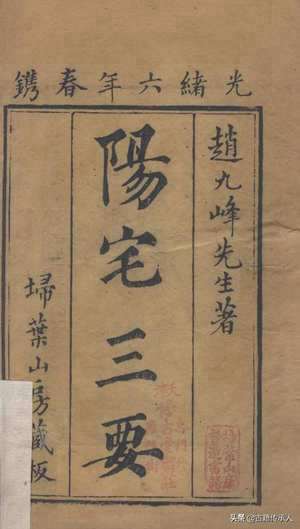 光緒六年春鐫
趙九峰先生著
陽宅三要
埽葉山房藏板
頭条 @古籍传承人